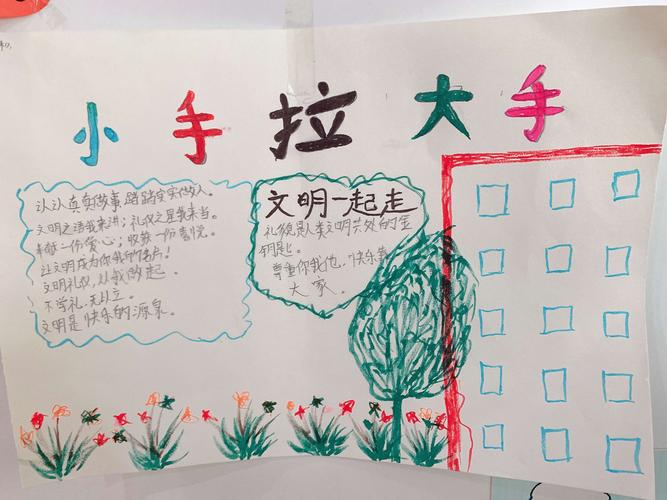 小手拉大手
认认真真做事，踏踏实实做人。
文明之语我来讲；礼仪之星我来当。
奉献一份爱心；收获一份喜悦。
让文明成为你我的名片！
文明礼仪，从我做起。
不学礼，无以立。
文明是快乐的源泉。
文明一起走
礼貌是人类文明共处的金
钥匙。
尊重你我他，快乐靠
大家。